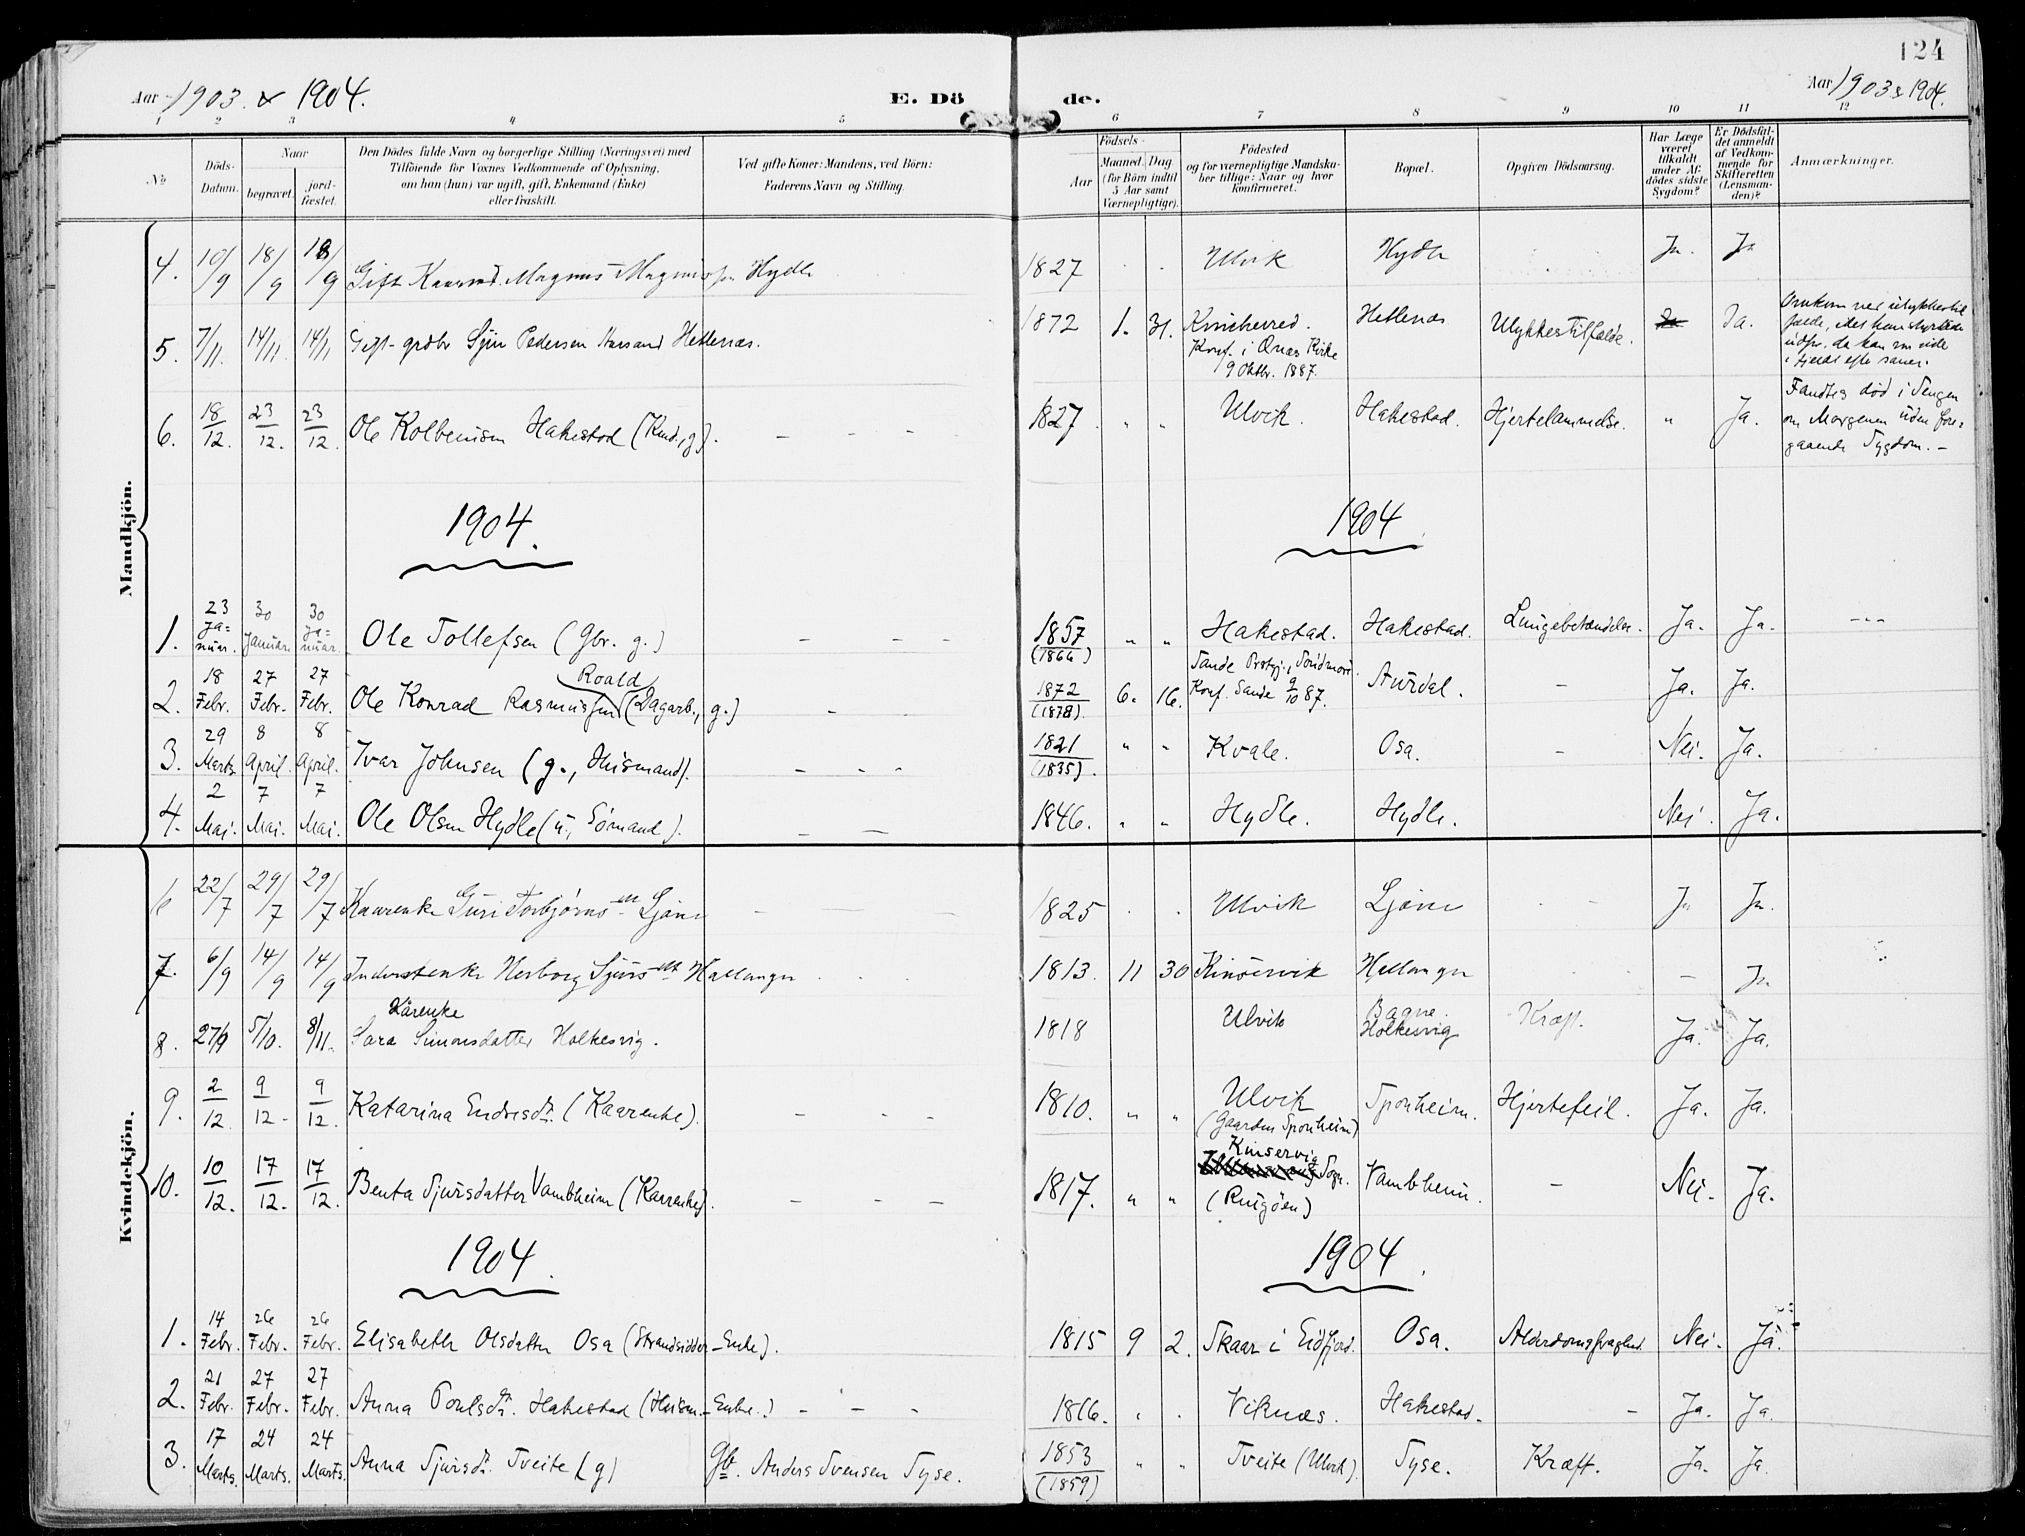 124
Aar 1903 & 1904.
E. Dö
de.
Aar 1903 & 1904.
1 2 3 4 5 6 7 8 9 10 11 12
No
Döds-Datum.
Naar
begravet.
jord-fæstet.
Den Dödes fulde Navn og borgerlige Stilling (Næringsvei) med
Tilföiende for Voxnes Vedkommende af Oplysning,
om han (hun) var ugift, gift, Enkemand (Enke)
eller fraskilt.
Ved gifte Koner: Mandens, ved Börn:
Faderens Navn og Stilling.
Aar
Födsels-
Maaned. Dag.
(for Börn indtil
5 Aar samt
Værnepligtige).
Födested
og for værnepligtige Mandska-
ber tillige: Naar og hvor
konfirmeret.
Bopæl.
Opgiven Dödsaarsag.
Har Læge
været
tilkaldt
under Af-
dödes sidste
Sygdom?
Er Dödsfal-
det anmeldt
af Vedkom-
mende for
Skifteretten
(Lensman-
den)?
Anmærkninger.
Mandkjön.
4. 10/9 18/9 18/9 Gift Magnus Hydle 1827 Ulvik Hydle Ja. Ja
5. 7/11. 14/11. 14/11 Gift Pedersen Hellenæs. 1872 1. 31. Hellenæs Ulykkestilfælde. Ja.
Konf. i Kirke
9 Oktbr. 1887.
6. 18/12. 23/12. 23/12 Ole Hakestad 1827. " " Ulvik. Hakestad. Hjertelammelse. " Ja.
Fandtes död i Sengen
om Morgenen uden fore-
gaaende Sygdom. –
1904. 1904
1. 23 Ja=nuar. 30 Januar. 30 Ja=nuar. Ole Tollefsen (Gbr. g.) – – – 1857 (1866) " " Hakestad. Hakestad. Lungebetændelse. Ja. Ja. ---
Roald
2. 18 Febr. 27 Febr. 27 Febr. Ole Konrad Rasmussen (Dagarb., g.) – 1872 (1878). 6. 16. Sande Prstgj., Söndmöre. Konf. Sande 9/10 87. Aurdal. – Ja. Ja.
3. 29 Marts 8 April. 8 April. Ivar Johnsen (g., Husmand). – – – 1821 (1835). " " Kvale. Osa. – Nei. Ja.
4. 2 Mai. 7 Mai. 7 Mai. Ole Olsen Hydle (u., Sömand). – – 1846. " " Hydle. Hydle. Nei. Ja.
Kvindekjön.
6 22/7 29/7 29/7 Kaarenke Guri Torbjörns Ljöne 1825 Ulvik Ljöne Ja Ja.
7. 6/9 14/9 14/9 Inderstenke Herborg Sjurs Hallanger 1813. 11 30 Kinservik Hallanger – Ja
Kårenke
8. 27/9 5/10. 8/11. Sara Simonsdatter Holkesvig. 1818 Ulvik Bagne. Holkesvig Kræft. Ja. Ja.
9. 2/12. 9/12. 9/12. Katarina Endresdtr. (Kaarenke). – – – 1810. " " Ulvik (Gaarden Sponheim) Sponheim. Hjertefeil. Ja. Ja.
10. 10/12. 17/12. 17/12. Benta Sjursdatter Vambheim (Kaarenke). – – – 1817. " " Kinservig Sogn. Vambheim. – Nei. Ja.
1904. 1904.
1. 14 Febr. 26 Febr. 26 Febr. Elisabeth Olsdatter Osa (Strandsidder-Enke). 1815 9 2. Skaar i Eidfjord. Osa. Alderdomssvaghed. Nei. Ja.
2. 21 Febr. 27 Febr. 27 Febr. Anna Poulsdtr. Hakestad (Husm.-Enke.) – – – 1816. Viknæs. Hakestad. – Ja. Ja.
3. 17 Marts. 24 Marts. 24 Marts. Anna Sjursdtr. Tveite (g) Gb. Anders Svensen Syse. 1853 (1859) " " Tveite (Ulvik). Syse. Kræft. Ja. Ja.